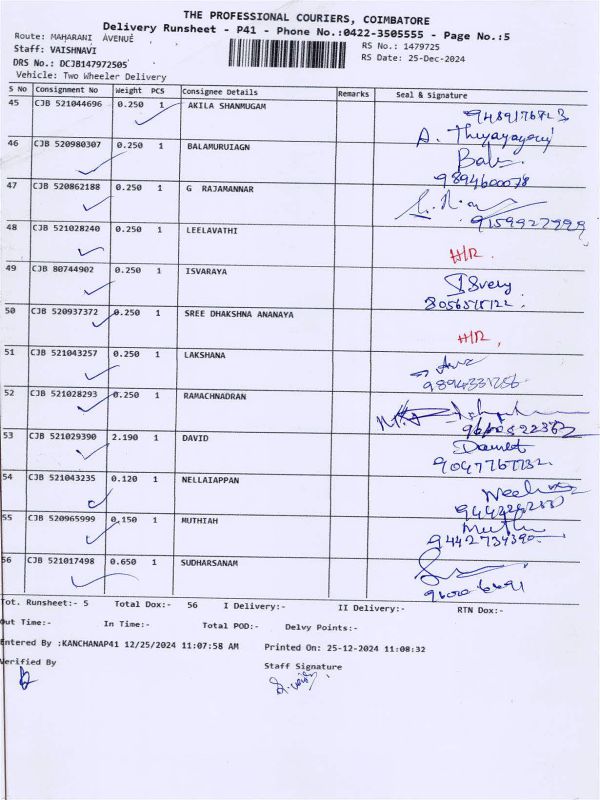 THE PROFESSIONAL COURIERS, COIMBATORE
Delivery Runsheet - P41 - Phone No.:0422-3505555 - Page No.:5
Route: MAHARANI AVENUE
RS No.: 1479725
Staff: VAISHNAVI
RS Date: 25-Dec-2024
DRS No.: DCJB147972505
Vehicle: Two Wheeler Delivery
S No Consignment No Weight PCS Consignee Details Remarks Seal & Signature
45 CJB 521044696 0.250 1 AKILA SHANMUGAM
46 CJB 520980307 0.250 1 BALAMURUIAGN
9894600078
47 CJB 520862188 0.250 1 G RAJAMANNAR
9159927999
48 CJB 521028240 0.250 1 LEELAVATHI H/R
49 CJB 80744902 0.250 1 ISVARAYA
50 CJB 520937372 0.250 1 SREE DHAKSHNA ANANAYA H/R
51 CJB 521043257 0.250 1 LAKSHANA
9894331256
52 CJB 521028293 0.250 1 RAMACHNADRAN
53 CJB 521029390 2.190 1 DAVID
54 CJB 521043235 0.120 1 NELLAIAPPAN
55 CJB 520965999 0.150 1 MUTHIAH
56 CJB 521017498 0.650 1 SUDHARSANAM
Tot. Runsheet:- 5 Total Dox:- 56 I Delivery:- II Delivery:- RTN Dox:-
Out Time:- In Time:- Total POD:- Delvy Points:-
Entered By :KANCHANAP41 12/25/2024 11:07:58 AM Printed On: 25-12-2024 11:08:32
Verified By Staff Signature